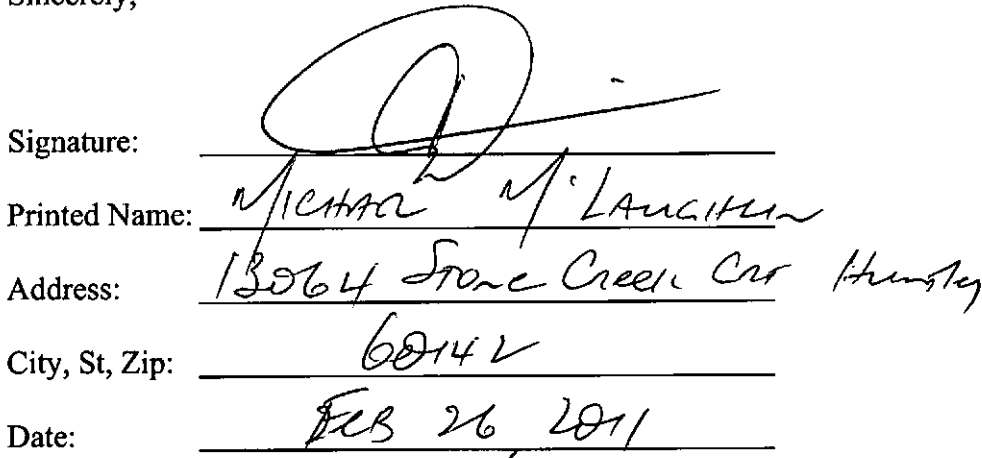 Sincerely,
Signature:
Printed Name: MICHAEL McLAUGHLIN
Address: 13064 Stone Creek Crt Huntley
City, St, Zip: 60142
Date: FEB 26, 2011